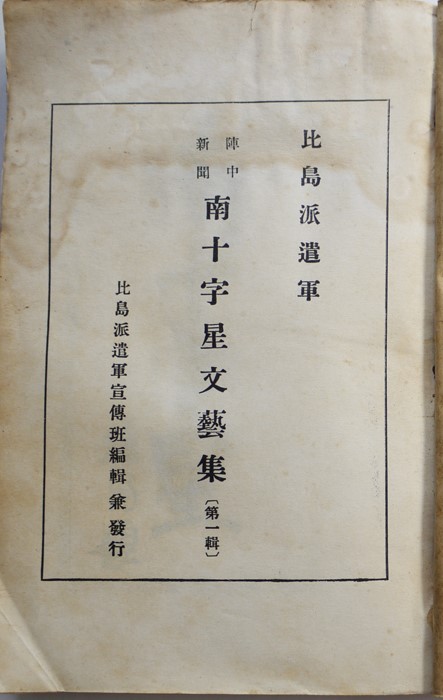 比島派遣軍
陣中
新聞
南十字星文藝集〔第一輯〕
比島派遣軍宣傳班編輯兼發行